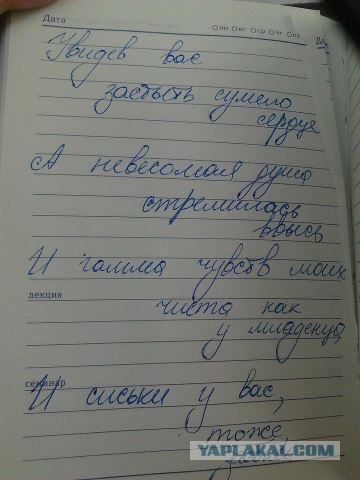 Дата
Увидев вас
застыть сумело
сердце
А невесомая душа
стремилась
ввысь
И гамма чувств моих
лекция
чиста как
у младенца
семинар
И сиськи у вас,
тоже,
YAPLAKAL.COM